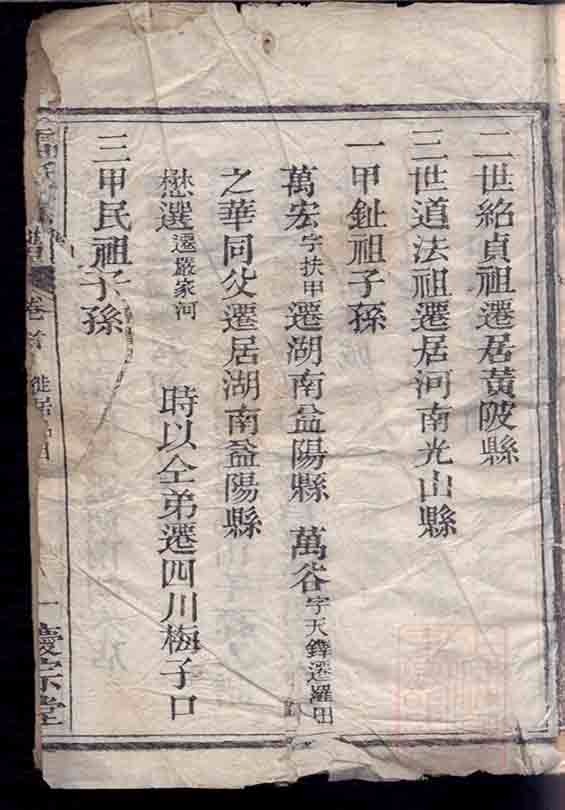 二世紹貞祖遷居黃陂縣
三世道法祖遷居河南光山縣
一甲鉦祖子孫
萬宏字扶甲遷湖南益陽縣 萬谷字天鐸遷羅田
之華同父遷居湖南益陽縣
懋選遷嚴家河 時以仝弟遷四川梅子口
三甲民祖子孫
卷首 徙居 一 慶宗堂